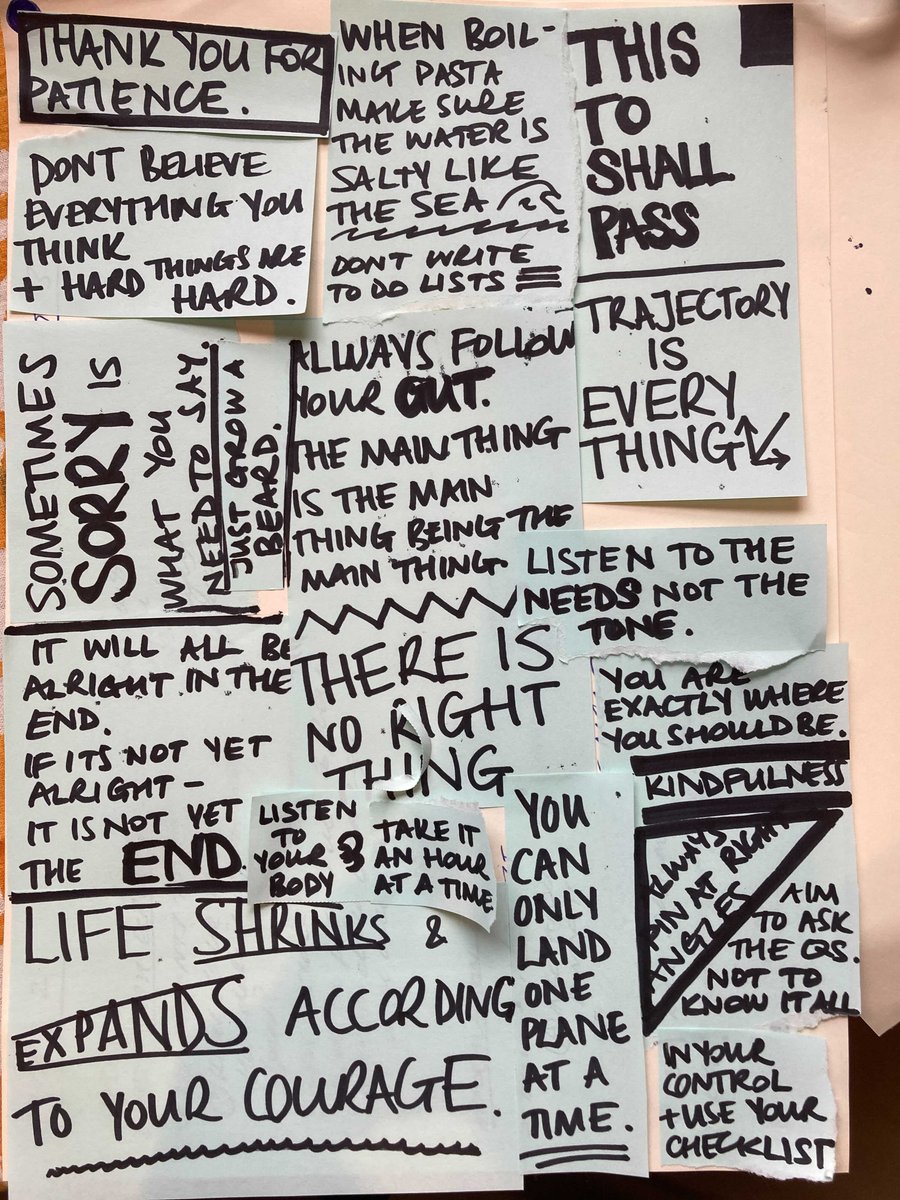 THANK YOU FOR
PATIENCE.
DONT BELIEVE
EVERYTHING YOU
THINK
+ HARD THINGS ARE
HARD.
WHEN BOIL-
ING PASTA
MAKE SURE
THE WATER IS
SALTY LIKE
THE SEA
DONT WRITE
TO DO LISTS
THIS
TO
SHALL
PASS
TRAJECTORY
IS
EVERY
THING
SOMETIMES
SORRY IS
WHAT YOU
NEED TO SAY.
JUST GROW A
BEARD.
ALWAYS FOLLOW
YOUR GUT.
THE MAIN THING
IS THE MAIN
THING BEING THE
MAIN THING
THERE IS
NO RIGHT
THING
LISTEN TO THE
NEEDS NOT THE
TONE.
IT WILL ALL BE
ALRIGHT IN THE
END.
IF ITS NOT YET
ALRIGHT –
IT IS NOT YET
THE END.
YOU ARE
EXACTLY WHERE
YOU SHOULD BE.
KINDFULNESS
LISTEN
TO
YOUR
BODY
&
TAKE IT
AN HOUR
AT A TIME
YOU
CAN
ONLY
LAND
ONE
PLANE
AT A
TIME.
ALWAYS
PIN AT RIGHT
ANGLES
AIM
TO ASK
THE QS.
NOT TO
KNOW IT ALL
LIFE SHRINKS &
EXPANDS ACCORDING
TO YOUR COURAGE.
IN YOUR
CONTROL
+ USE YOUR
CHECKLIST